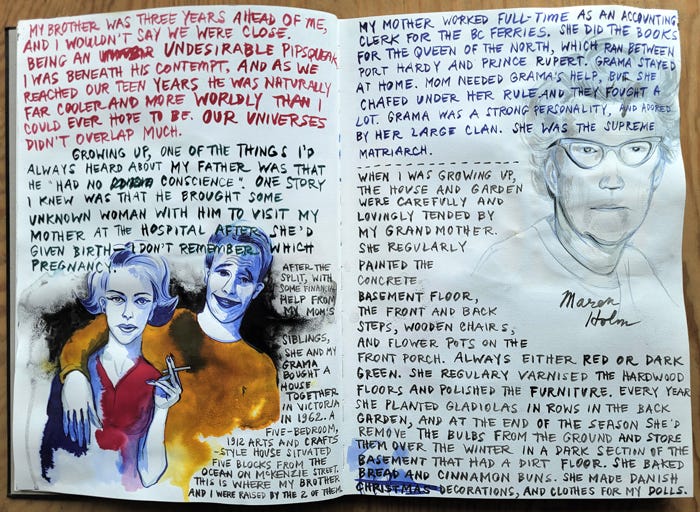 MY BROTHER WAS THREE YEARS AHEAD OF ME,
AND I WOULDN'T SAY WE WERE CLOSE.
BEING AN UNDESIRABLE PIPSQUEAK
I WAS BENEATH HIS CONTEMPT, AND AS WE
REACHED OUR TEEN YEARS HE WAS NATURALLY
FAR COOLER AND MORE WORLDLY THAN I
COULD EVER HOPE TO BE. OUR UNIVERSES
DIDN'T OVERLAP MUCH.
GROWING UP, ONE OF THE THINGS I'D
ALWAYS HEARD ABOUT MY FATHER WAS THAT
HE "HAD NO CONSCIENCE". ONE STORY
I KNEW WAS THAT HE BROUGHT SOME
UNKNOWN WOMAN WITH HIM TO VISIT MY
MOTHER AT THE HOSPITAL AFTER SHE'D
GIVEN BIRTH—I DON'T REMEMBER WHICH
PREGNANCY.
AFTER THE
SPLIT, WITH
SOME FINANCIAL
HELP FROM
MY MOM'S
SIBLINGS,
SHE AND MY
GRAMA
BOUGHT A
HOUSE
TOGETHER
IN VICTORIA
IN 1962. A
FIVE-BEDROOM,
1912 ARTS AND CRAFTS
-STYLE HOUSE SITUATED
FIVE BLOCKS FROM THE
OCEAN ON McKENZIE STREET.
THIS IS WHERE MY BROTHER
AND I WERE RAISED BY THE 2 OF THEM.
MY MOTHER WORKED FULL-TIME AS AN ACCOUNTING
CLERK FOR THE BC FERRIES. SHE DID THE BOOKS
FOR THE QUEEN OF THE NORTH, WHICH RAN BETWEEN
PORT HARDY AND PRINCE RUPERT. GRAMA STAYED
AT HOME. MOM NEEDED GRAMA'S HELP, BUT SHE
CHAFED UNDER HER RULE AND THEY FOUGHT A
LOT. GRAMA WAS A STRONG PERSONALITY, AND ADORED
BY HER LARGE CLAN. SHE WAS THE SUPREME
MATRIARCH.
WHEN I WAS GROWING UP,
THE HOUSE AND GARDEN
WERE CAREFULLY AND
LOVINGLY TENDED BY
MY GRANDMOTHER.
SHE REGULARLY
PAINTED THE
CONCRETE
BASEMENT FLOOR,
THE FRONT AND BACK
STEPS, WOODEN CHAIRS,
AND FLOWER POTS ON THE
FRONT PORCH. ALWAYS EITHER RED OR DARK
GREEN. SHE REGULARY VARNISED THE HARDWOOD
FLOORS AND POLISHED THE FURNITURE. EVERY YEAR
SHE PLANTED GLADIOLAS IN ROWS IN THE BACK
GARDEN, AND AT THE END OF THE SEASON SHE'D
REMOVE THE BULBS FROM THE GROUND AND STORE
THEM OVER THE WINTER IN A DARK SECTION OF THE
BASEMENT THAT HAD A DIRT FLOOR. SHE BAKED
BREAD AND CINNAMON BUNS. SHE MADE DANISH
CHRISTMAS DECORATIONS, AND CLOTHES FOR MY DOLLS.
Maren
Holm